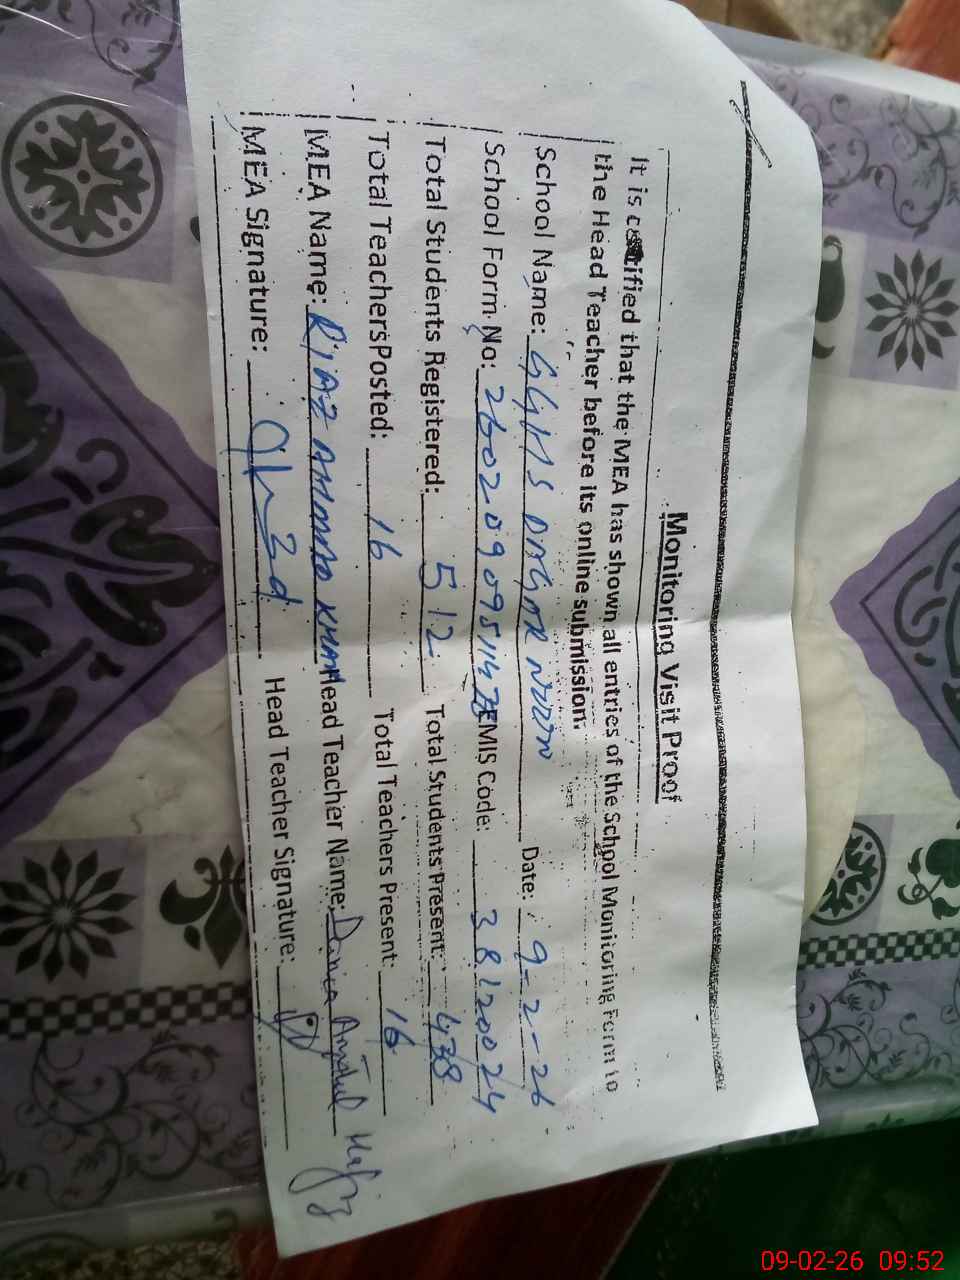 Monitoring Visit Proof
It is certified that the MEA has shown all entries of the School Monitoring Form to
the Head Teacher before its online submission.
School Name: GGHS DAGAR NOON Date: 9-2-26
School Form No: EMIS Code: 38120024
Total Students Registered: 512 Total Students Present: 438
Total Teachers Posted: 16 Total Teachers Present: 16
MEA Name: RIAZ AHMAD KHAN Head Teacher Name: Hafiz
MEA Signature: Head Teacher Signature:
09-02-26 09:52